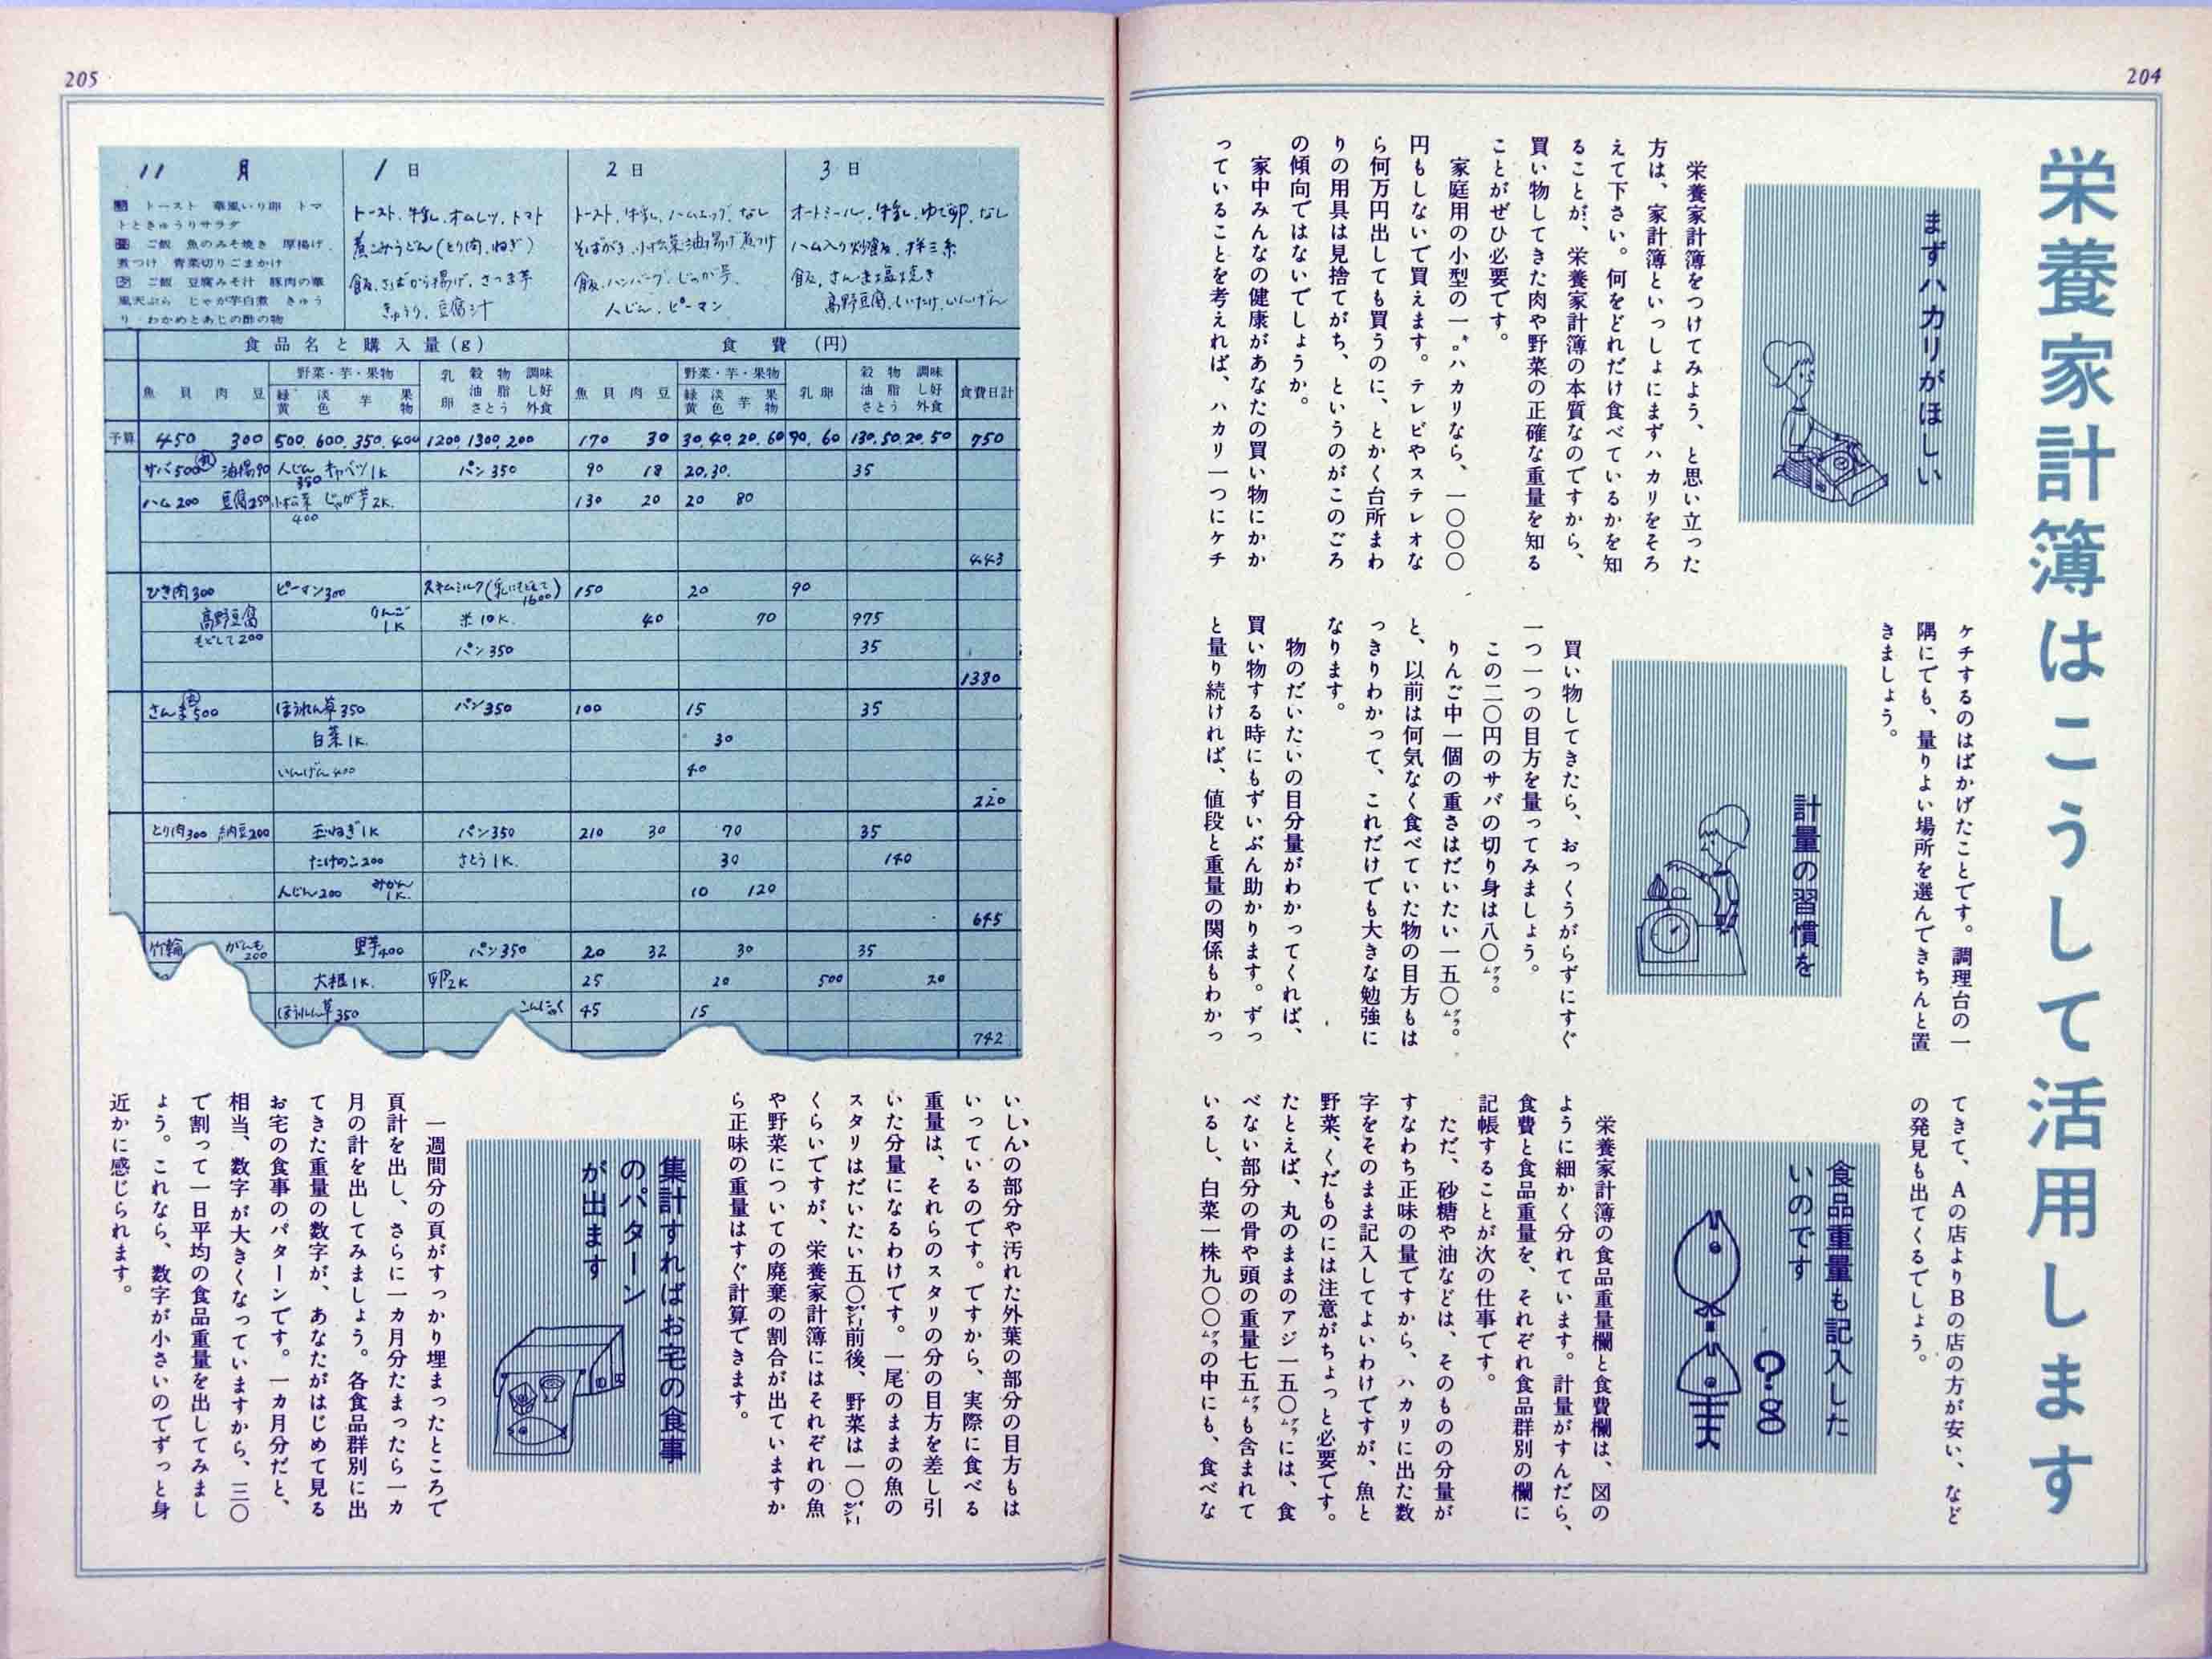 204
栄養家計簿はこうして活用します
まずハカリがほしい
栄養家計簿をつけてみよう、と思い立った
方は、家計簿といっしょにまずハカリをそろ
えて下さい。何をどれだけ食べているかを知
ることが、栄養家計簿の本質なのですから、
買い物してきた肉や野菜の正確な重量を知る
ことがぜひ必要です。
家庭用の小型の一㌔ハカリなら、一〇〇〇
円もしないで買えます。テレビやステレオな
ら何万円出しても買うのに、とかく台所まわ
りの用具は見捨てがち、というのがこのごろ
の傾向ではないでしょうか。
家中みんなの健康があなたの買い物にかか
っていることを考えれば、ハカリ一つにケチ
ケチするのはばかげたことです。調理台の一
隅にでも、量りよい場所を選んできちんと置
きましょう。
計量の習慣を
買い物してきたら、おっくうがらずにすぐ
一つ一つの目方を量ってみましょう。
この二〇円のサバの切り身は八〇㌘。
りんご中一個の重さはだいたい一五〇㌘。
と、以前は何気なく食べていた物の目方もは
っきりわかって、これだけでも大きな勉強に
なります。
物のだいたいの目分量がわかってくれば、
買い物する時にもずいぶん助かります。ずっ
と量り続ければ、値段と重量の関係もわかっ
てきて、Aの店よりBの店の方が安い、など
の発見も出てくるでしょう。
食品重量も記入した
いのです
?g
栄養家計簿の食品重量欄と食費欄は、図の
ように細かく分れています。計量がすんだら、
食費と食品重量を、それぞれ食品群別の欄に
記帳することが次の仕事です。
ただ、砂糖や油などは、そのものの分量が
すなわち正味の量ですから、ハカリに出た数
字をそのまま記入してよいわけですが、魚と
野菜、くだものには注意がちょっと必要です。
たとえば、丸のままのアジ一五〇㌘には、食
べない部分の骨や頭の重量七五㌘も含まれて
いるし、白菜一株九〇〇㌘の中にも、食べな
205
11月
1日
2日
3日
朝 トースト 華風いり卵 トマ
トときゅうりサラダ
昼 ご飯 魚のみそ焼き 厚揚げ
煮つけ 青菜切りごまかけ
夕 ご飯 豆腐みそ汁 豚肉の華
風天ぷら じゃが芋白煮 きゅう
り わかめとあじの酢の物
トースト、牛乳、オムレツ、トマト
煮こみうどん(とり肉、ねぎ)
飯、さばから揚げ、さつま芋
きゅうり、豆腐汁
トースト、牛乳、ハムエッグ、なし
そばがき、小松菜油揚げ煮つけ
飯、ハンバーグ、じゃが芋、
人じん、ピーマン
オートミール、牛乳、ゆで卵、なし
ハム入り炒飯、拌三糸
飯、さんま塩焼き
高野豆腐、しいたけ、いんげん
食品名と購入量(g)
食費(円)
魚 貝 肉 豆
野菜・芋・果物
緑黄 淡色 芋 果物
乳卵 穀物 油脂 さとう 調味 し好 外食
魚 貝 肉 豆
野菜・芋・果物
緑黄 淡色 芋 果物
乳卵
穀物 油脂 さとう 調味 し好 外食
食費日計
予算 450 300 500. 600. 350. 400 1200. 1300. 200 170 30 30. 40. 20. 60 90. 60 130. 50. 20. 50 750
サバ500 丸 油揚90 人じん350 キャベツ1K パン350 90 18 20. 30. 35
ハム200 豆腐250 小松菜400 じゃが芋2K. 130 20 20 80
443
ひき肉300 ピーマン300 スキムミルク(乳にもどして1600) 150 20 90
高野豆腐もどして200 りんご1K 米10K. 40 70 975
パン350 35
1380
さんま500 丸 ほうれん草350 パン350 100 15 35
白菜1K. 30
いんげん400 40
220
とり肉300 納豆200 玉ねぎ1K パン350 210 30 70 35
たけのこ200 さとう1K. 30 140
人じん200 みかん1K. 10 120
645
竹輪 がんも200 里芋400 パン350 20 32 30 35
大根1K. 卵2K 25 20 500 20
ほうれん草350 こんにゃく 45 15
742
いしんの部分や汚れた外葉の部分の目方もは
いっているのです。ですから、実際に食べる
重量は、それらのスタリの分の目方を差し引
いた分量になるわけです。一尾のままの魚の
スタリはだいたい五〇㌫前後、野菜は一〇㌫
くらいですが、栄養家計簿にはそれぞれの魚
や野菜についての廃棄の割合が出ていますか
ら正味の重量はすぐ計算できます。
集計すればお宅の食事
のパターン
が出ます
一週間分の頁がすっかり埋まったところで
頁計を出し、さらに一カ月分たまったら一カ
月の計を出してみましょう。各食品群別に出
てきた重量の数字が、あなたがはじめて見る
お宅の食事のパターンです。一カ月分だと、
相当、数字が大きくなっていますから、三〇
で割って一日平均の食品重量を出してみまし
ょう。これなら、数字が小さいのでずっと身
近かに感じられます。